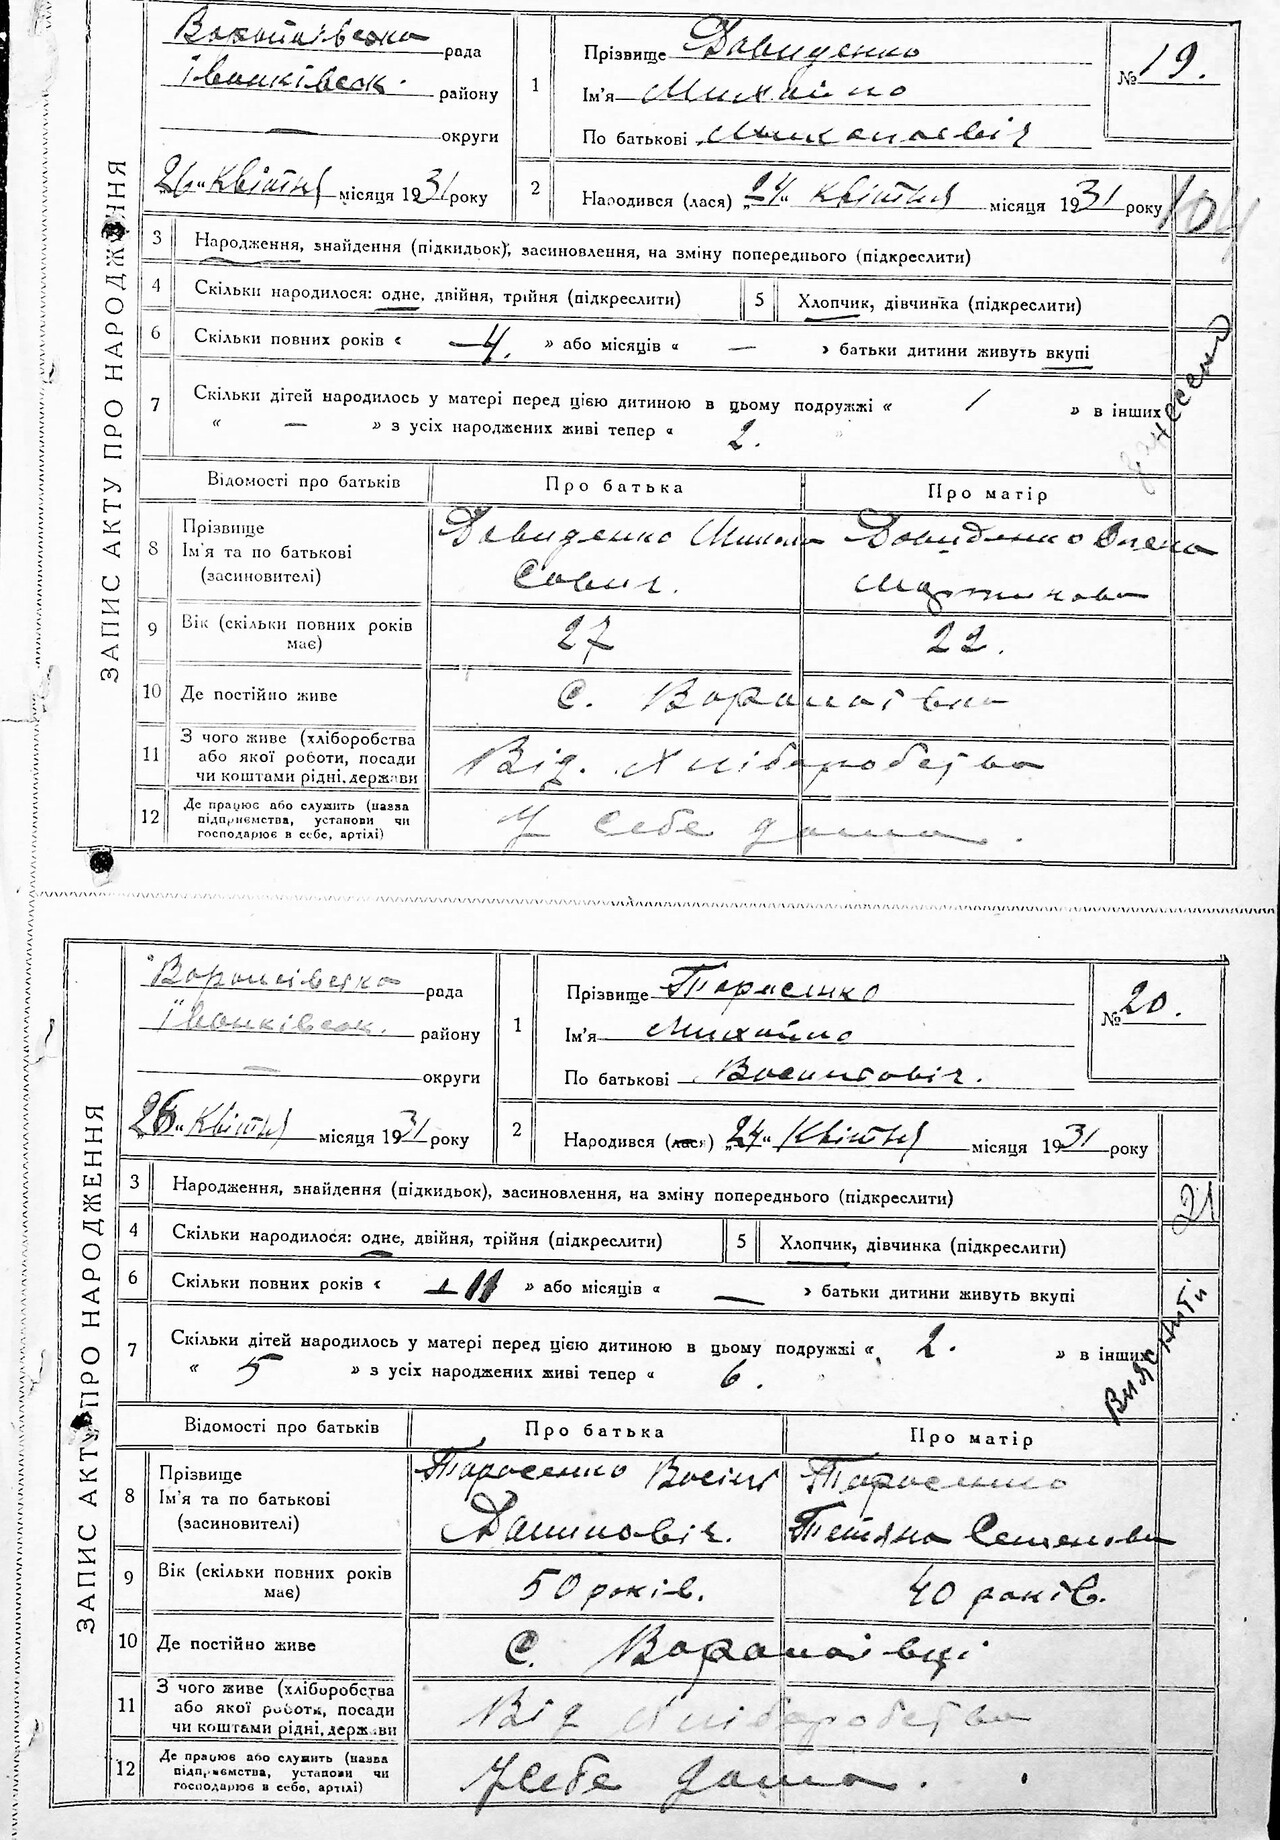 ЗАПИС АКТУ ПРО НАРОДЖЕННЯ
рада
Іванківськ. району
— округи
26 Квітня місяця 1931 року
1
Прізвище Давиденко
Ім'я Михайло
По батькові Миколаєвіч
№ 19.
2 Народився (лася) „24" квітня місяця 1931 року
3 Народження, знайдення (підкидьок), засиновлення, на зміну попереднього (підкреслити)
4 Скільки народилося: одне, двійня, трійня (підкреслити) 5 Хлопчик, дівчинка (підкреслити)
6 Скільки повних років « —4. » або місяців « — » батьки дитини живуть вкупі
7 Скільки дітей народилось у матері перед цією дитиною в цьому подружжі « 1 » в інших
« — » з усіх народжених живі тепер « 2.
Відомості про батьків Про батька Про матір
8 Прізвище Ім'я та по батькові (засиновителі)
Давиденко Микола
Давиденко Олена
Мартинова
9 Вік (скільки повних років має) 27 22.
10 Де постійно живе С.
11 З чого живе (хліборобства або якої роботи, посади чи коштами рідні, держави Від. хліборобства
12 Де працює або служить (назва підприємства, установи чи господарює в себе, артілі) У себе дома.
ЗАПИС АКТУ ПРО НАРОДЖЕННЯ
рада
Іванківськ. району
— округи
26 Квітня місяця 1931 року
1
Прізвище Тарасенко
Ім'я Михайло
По батькові
№ 20.
2 Народився (лася) „24" Квітня місяця 1931 року
21
3 Народження, знайдення (підкидьок), засиновлення, на зміну попереднього (підкреслити)
4 Скільки народилося: одне, двійня, трійня (підкреслити) 5 Хлопчик, дівчинка (підкреслити)
6 Скільки повних років « 11 » або місяців « — » батьки дитини живуть вкупі
7 Скільки дітей народилось у матері перед цією дитиною в цьому подружжі « 2. » в інших
« 5 » з усіх народжених живі тепер « 6.
Вияснити
Відомості про батьків Про батька Про матір
8 Прізвище Ім'я та по батькові (засиновителі)
Тарасенко
Даниловіч.
Тарасенко
Тетяна Семенова
9 Вік (скільки повних років має) 50 років. 40 років.
10 Де постійно живе С.
11 З чого живе (хліборобства або якої роботи, посади чи коштами рідні, держави Від хліборобства
12 Де працює або служить (назва підприємства, установи чи господарює в себе, артілі) У себе дома.